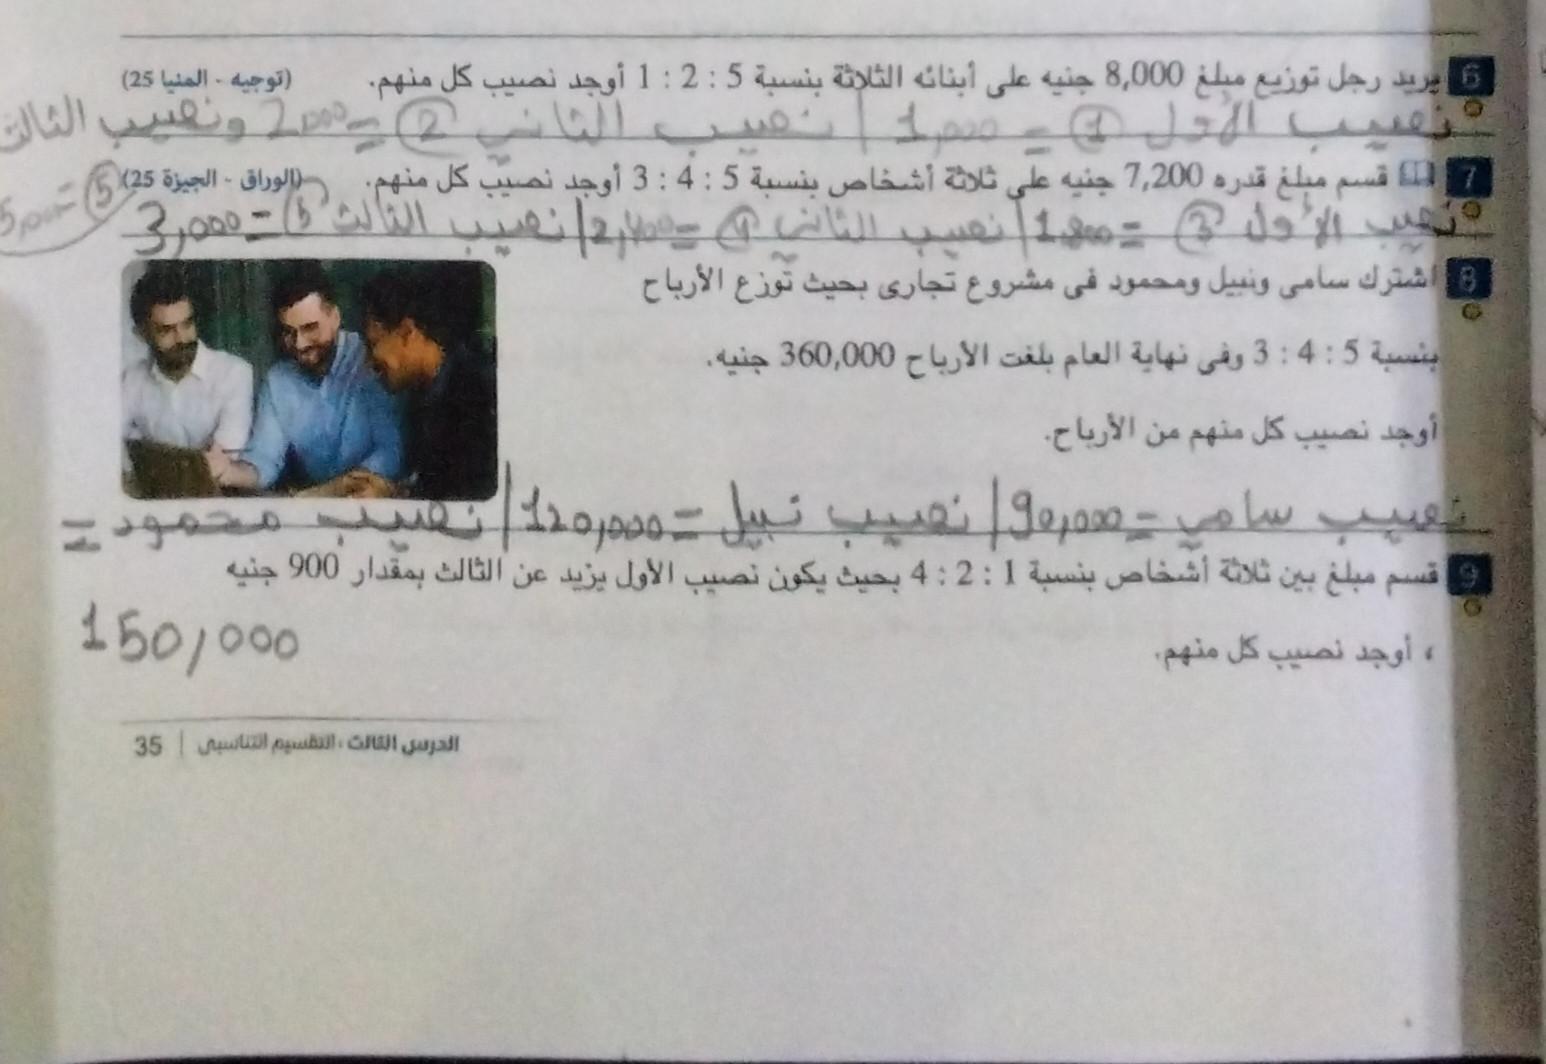 6 يريد رجل توزيع مبلغ 8,000 جنيه على أبنائه الثلاثة بنسبة 5 : 2 : 1 أوجد نصيب كل منهم. (توجيه - المنيا 25)
نصيب الأول ① = 1,000 | نصيب الثاني ② = 2,000 ونصيب الثالث
⑤ = 5,000
7 قسم مبلغ قدره 7,200 جنيه على ثلاثة أشخاص بنسبة 5 : 4 : 3 أوجد نصيب كل منهم. (الوراق - الجيزة 25)
نصيب الأول ③ = 1,800 | نصيب الثاني ④ = 2,400 | نصيب الثالث ⑤ = 3,000
8 اشترك سامى ونبيل ومحمود فى مشروع تجارى بحيث توزع الأرباح
بنسبة 5 : 4 : 3 وفى نهاية العام بلغت الأرباح 360,000 جنيه.
أوجد نصيب كل منهم من الأرباح.
نصيب سامي = 90,000 | نصيب نبيل = 120,000 | نصيب محمود =
150,000
9 قسم مبلغ بين ثلاثة أشخاص بنسبة 1 : 2 : 4 بحيث يكون نصيب الأول يزيد عن الثالث بمقدار 900 جنيه
، أوجد نصيب كل منهم.
الدرس الثالث : التقسيم التناسبى | 35